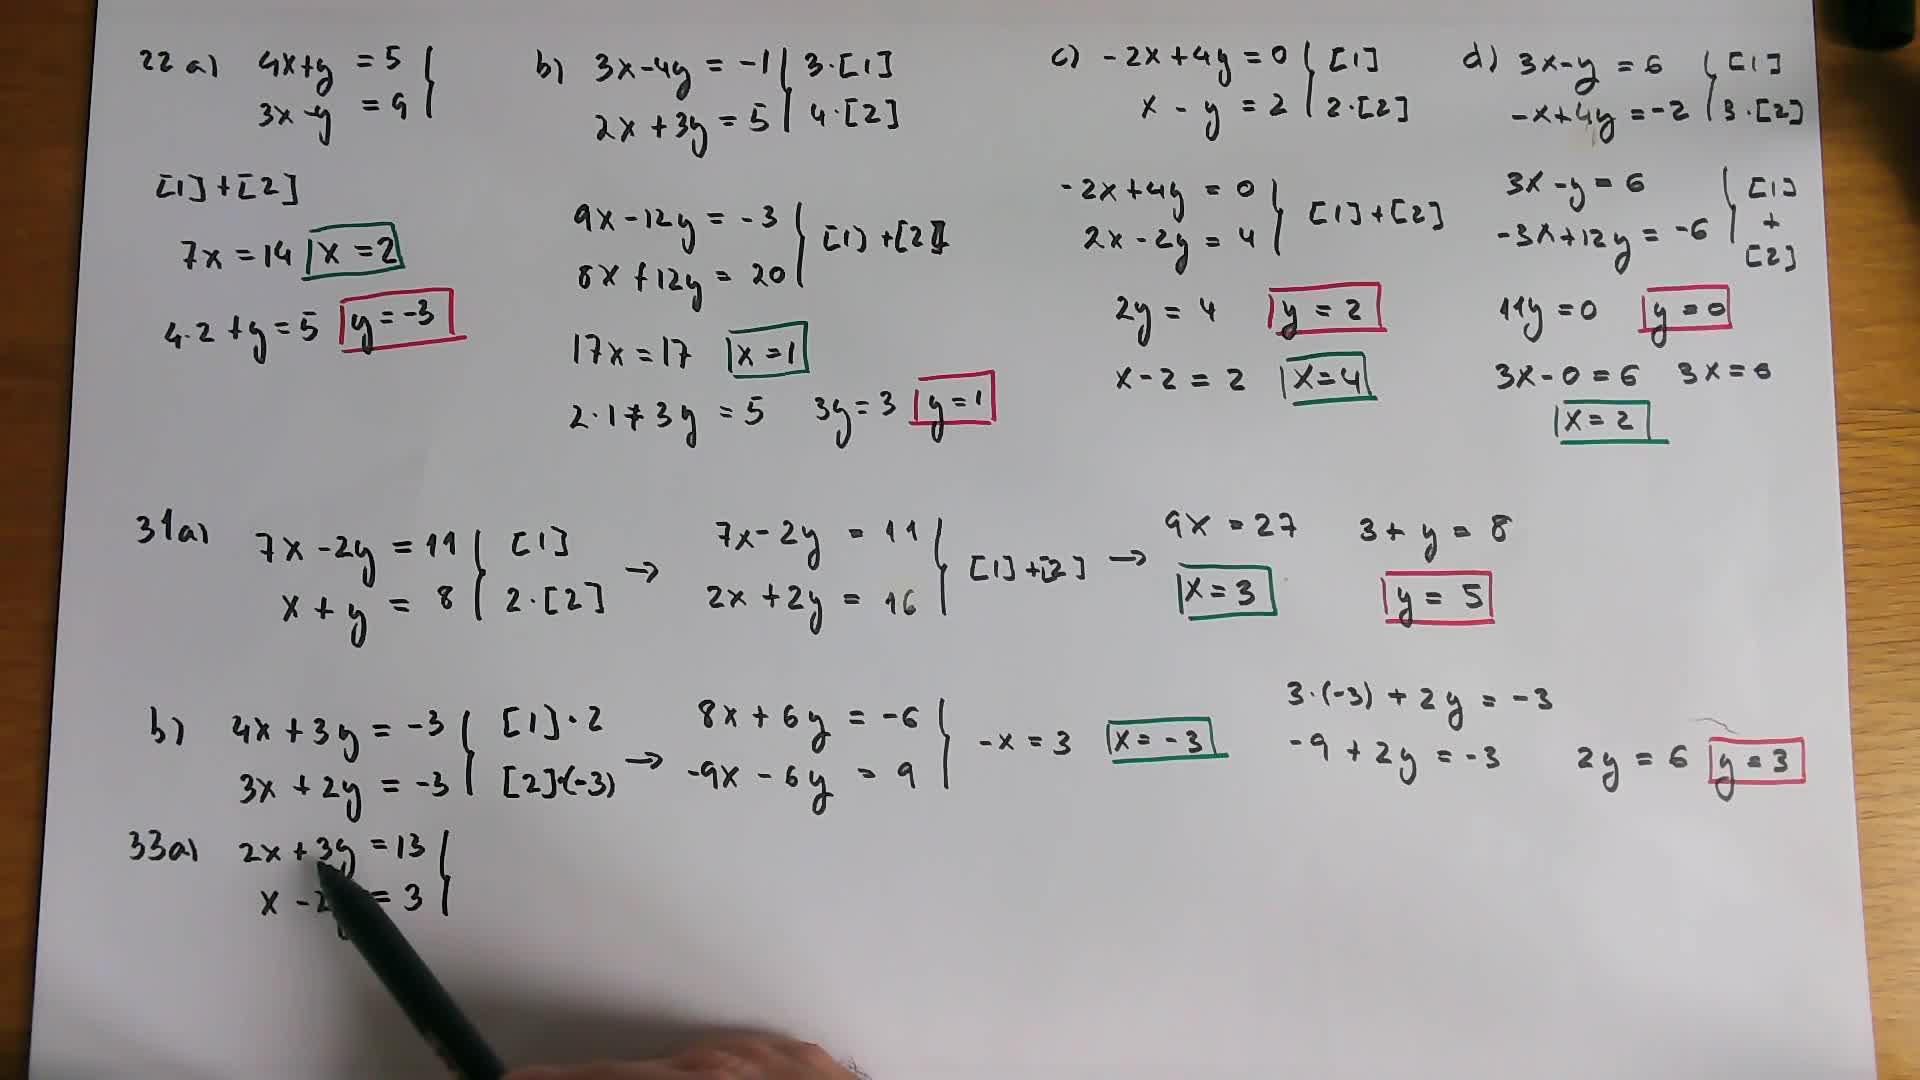 22 a) 4x+y = 5
3x-y = 9
[1]+[2]
7x = 14 x = 2
4·2 + y = 5 y = -3
b) 3x-4y = -1 3·[1]
2x + 3y = 5 4·[2]
9x - 12y = -3
8x + 12y = 20
[1]+[2]
17x = 17 x = 1
2·1 + 3y = 5 3y = 3 y = 1
c) -2x + 4y = 0 [1]
x - y = 2 2·[2]
-2x + 4y = 0
2x - 2y = 4
[1]+[2]
2y = 4 y = 2
x - 2 = 2 x = 4
d) 3x - y = 6 [1]
-x + 4y = -2 3·[2]
3x - y = 6 [1]
+
-3x + 12y = -6 [2]
11y = 0 y = 0
3x - 0 = 6 3x = 6
x = 2
31a) 7x - 2y = 11 [1]
x + y = 8 2·[2]
→
7x - 2y = 11
2x + 2y = 16
[1]+[2] →
9x = 27 3 + y = 8
x = 3 y = 5
b) 4x + 3y = -3 [1]·2
3x + 2y = -3 [2]·(-3)
→
8x + 6y = -6
-9x - 6y = 9
-x = 3 x = -3
3·(-3) + 2y = -3
-9 + 2y = -3 2y = 6 y = 3
33a) 2x + 3y = 13
x - 2 = 3